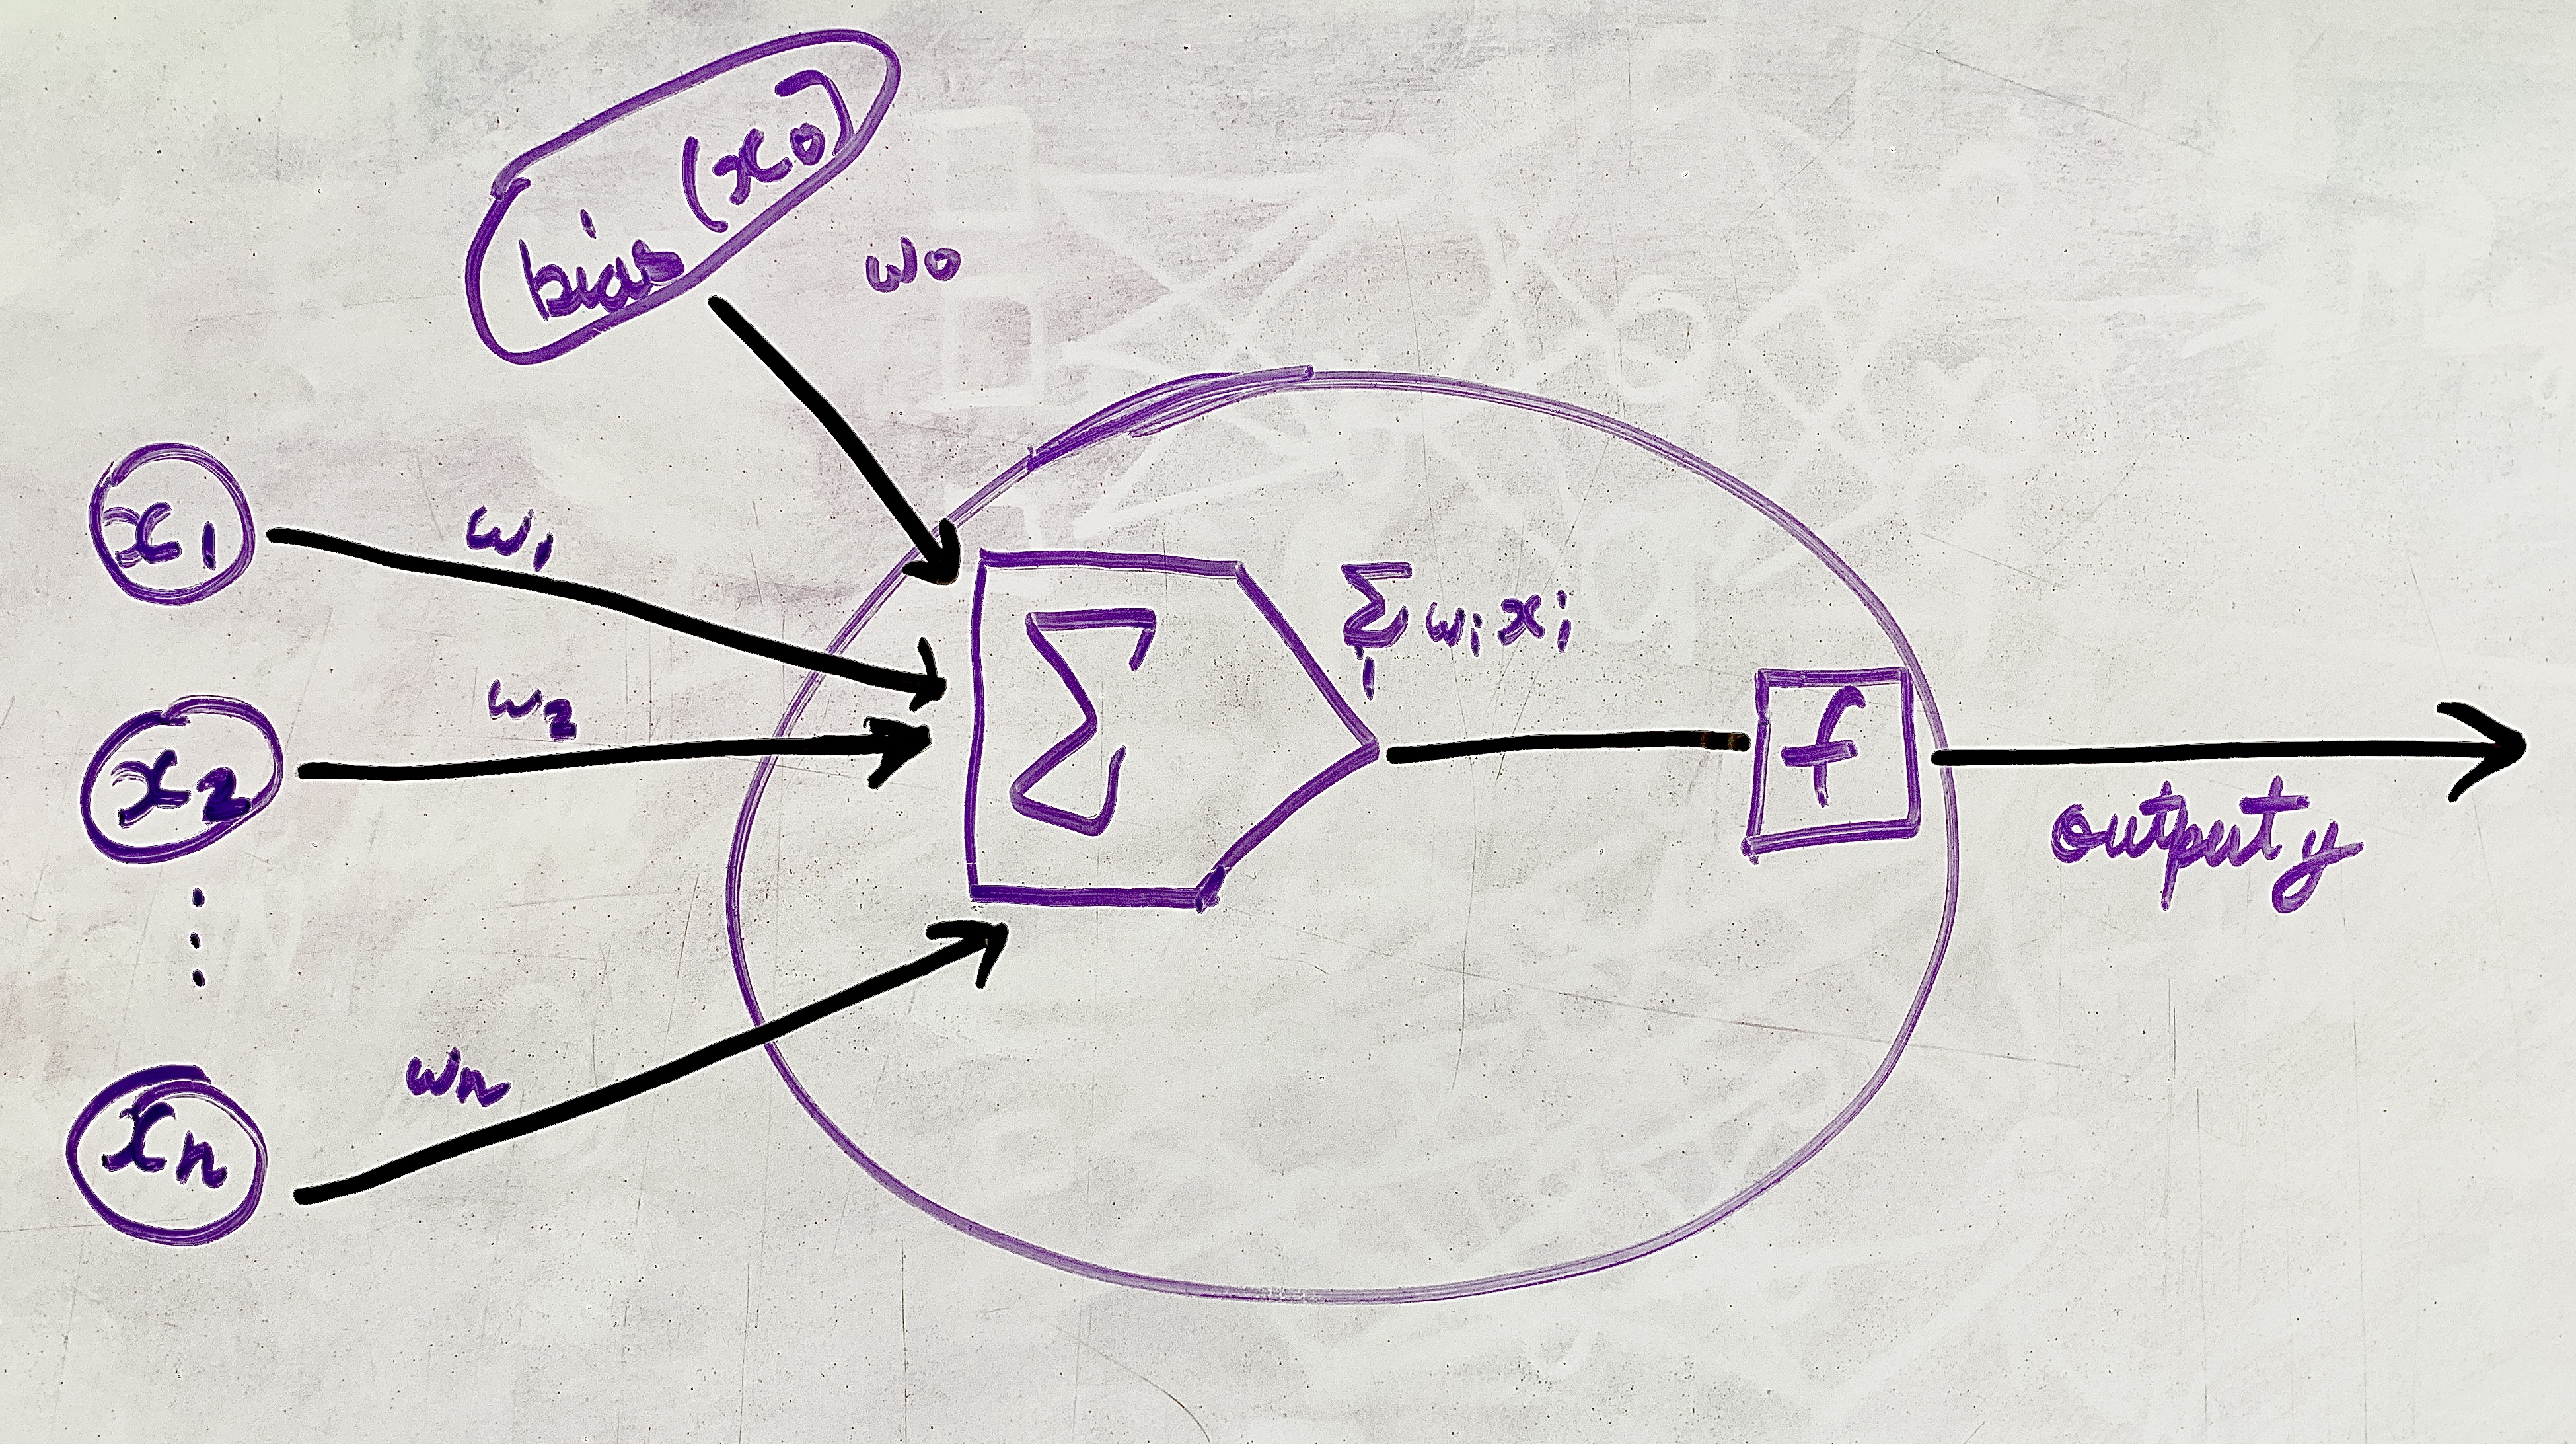 bias (x0)
w0
x1
w1
x2
w2
⋮
xn
wn
Σ
Σ wi xi
i
f
output y